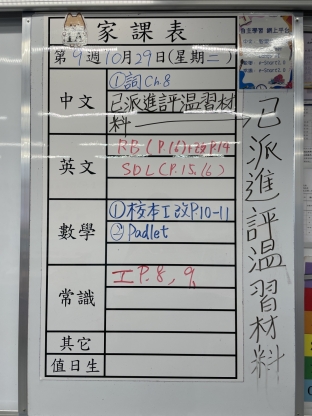 家課表
第9週10月29日(星期二)
中文
①詞Ch.8
已派進評溫習材
料
英文
RB (P.16)+改P.14
SDL(P.15,16)
數學
①校本工改P.10-11
②Padlet
常識
工P.8,9,
其它
值日生
已派進評溫習材料
自主學習 網上平台